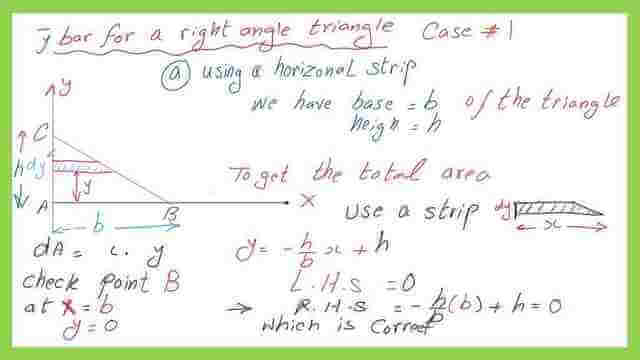 ȳ bar for a right angle triangle Case #1
ⓐ using a horizonal strip
we have base = b of the triangle
heign = h
y
C
h dy
y
A
B
x
b
To get the total area
Use a strip dy
x
dA = . y
y = -h/b x + h
check point B
L.H.S = 0
at x = b
→ R.H.S = -h/b(b) + h = 0
y = 0
which is Correct